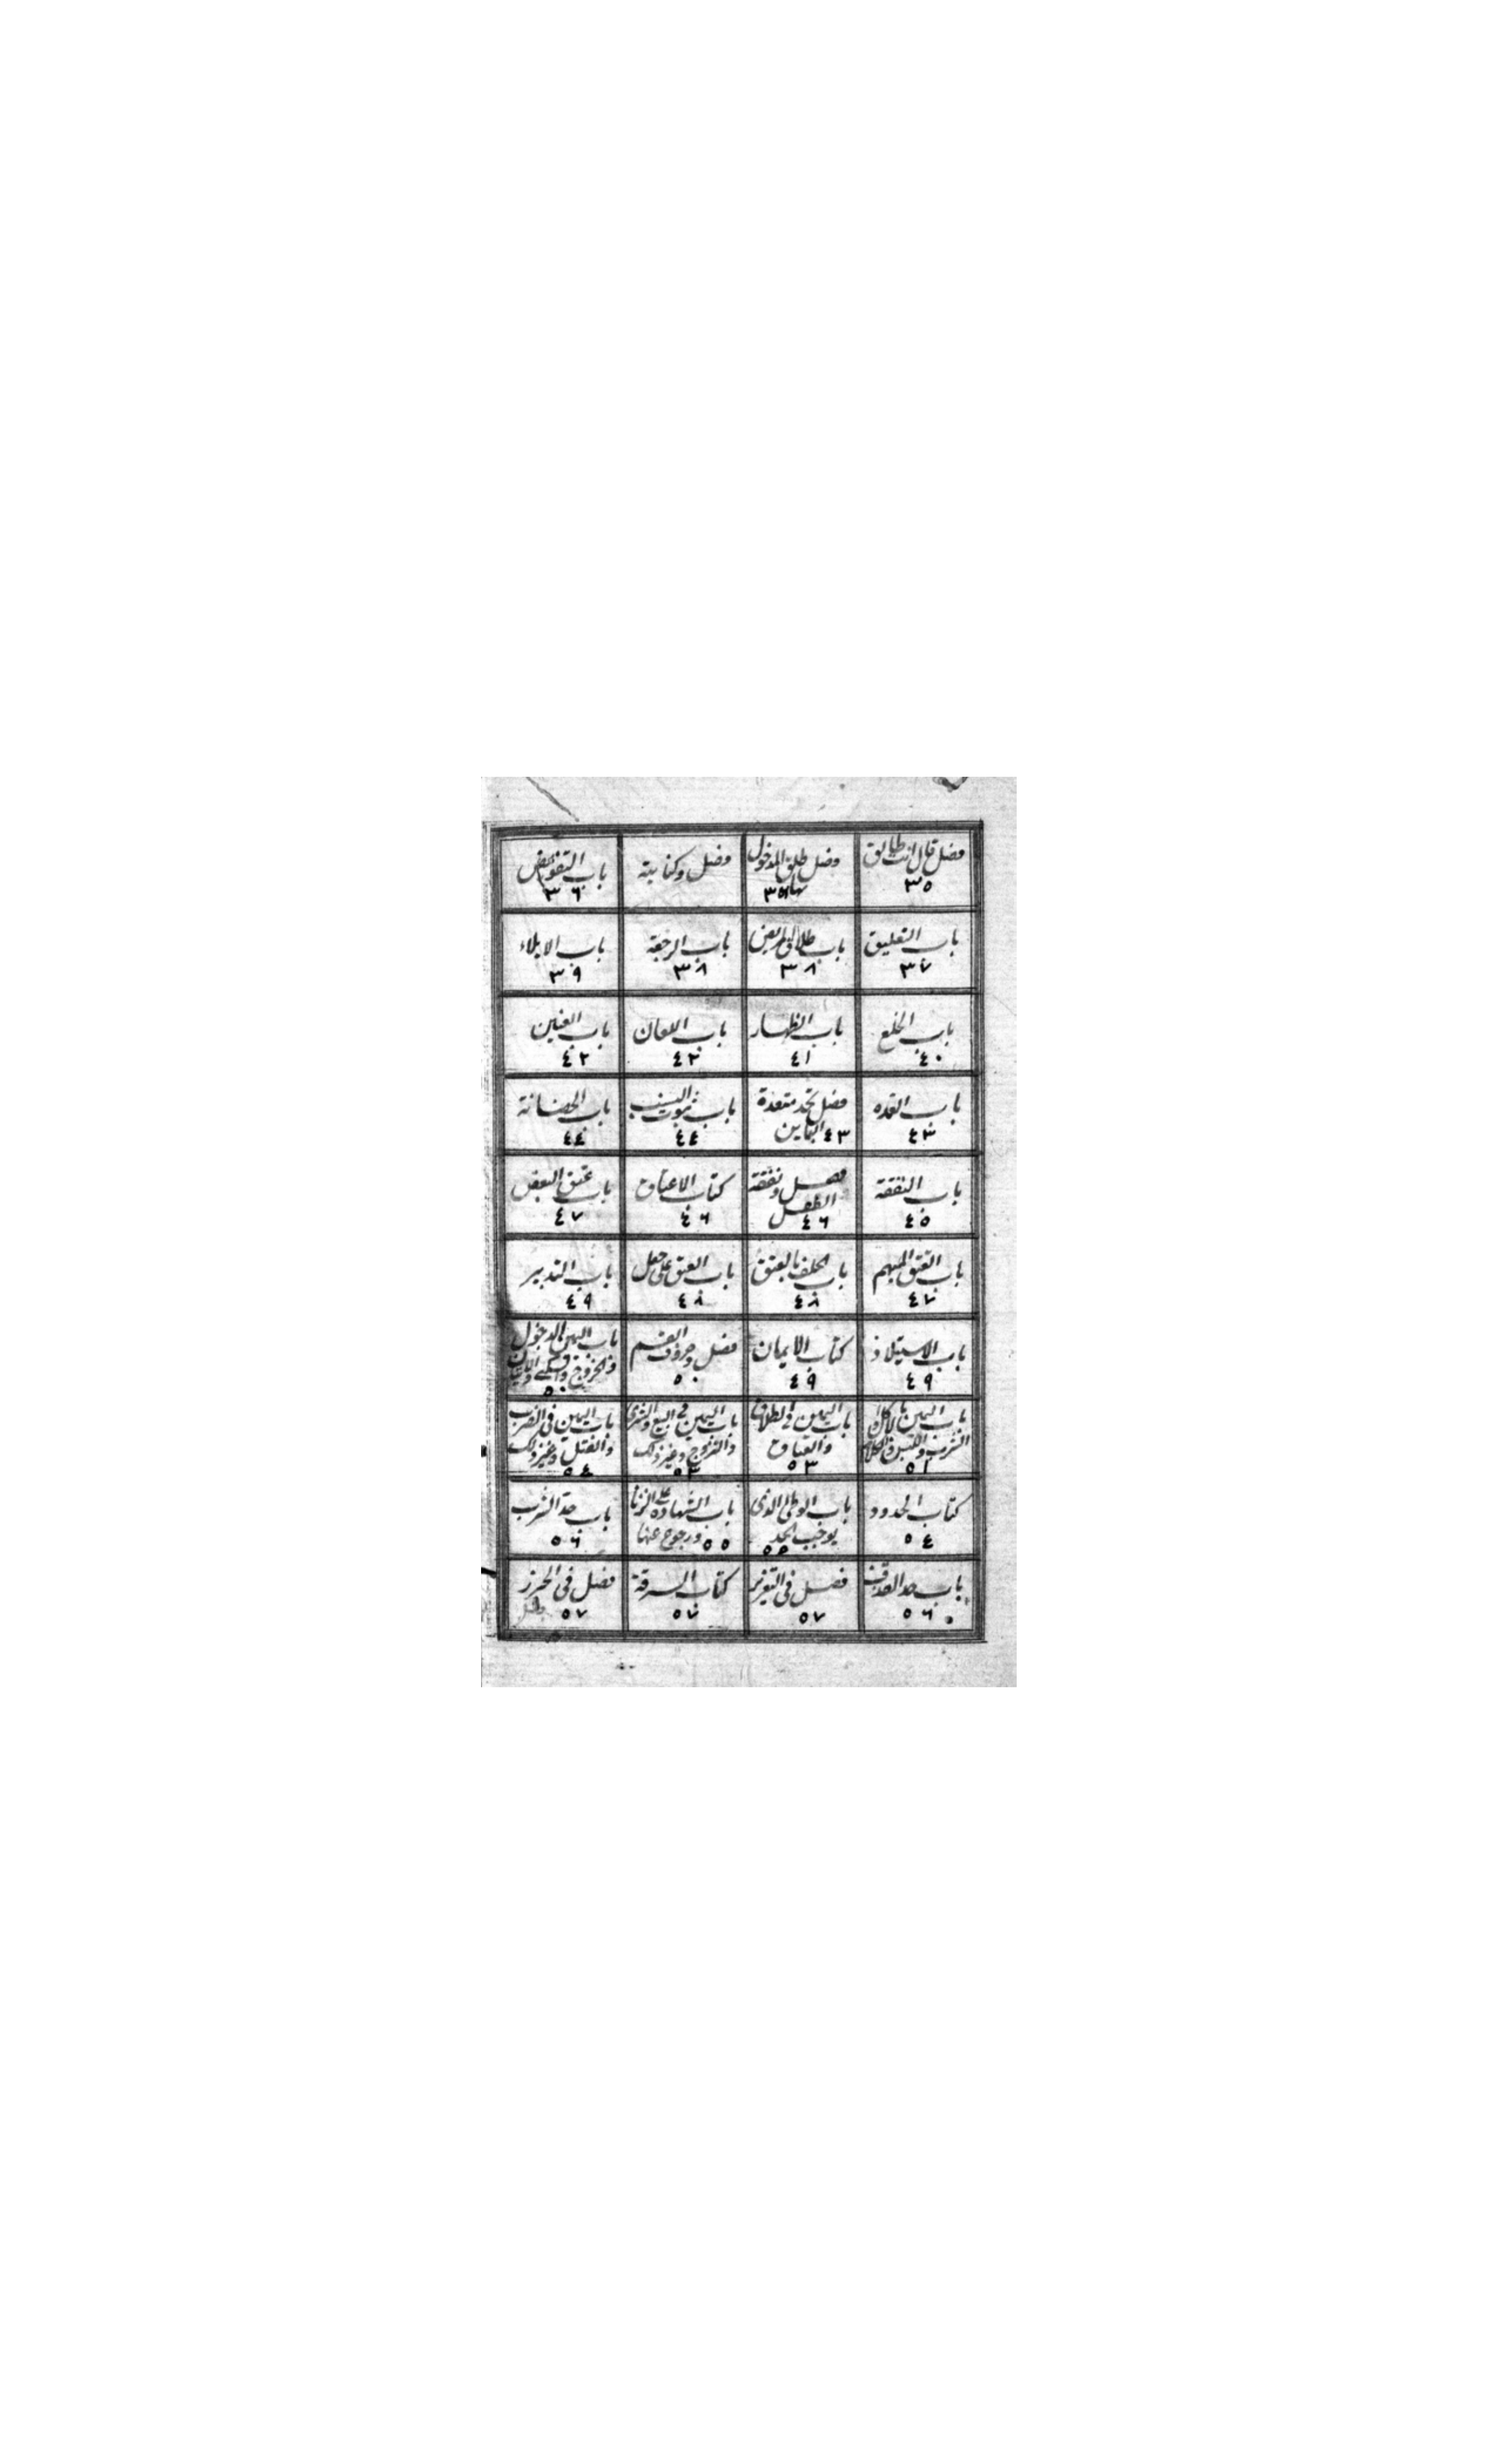 فصل قال انت طالق
٣٥
فصل طلق المدخول
بها ٣٥
فصل وكنايته
باب التفويض
٣٦
باب التعليق
٣٧
باب طلاق المريض
٣٨
باب الرجعة
٣٨
باب الايلاء
٣٩
باب الخلع
٤٠
باب الظهار
٤١
باب اللعان
٤٢
باب العنين
٤٢
باب العده
٤٣
فصل تحد معتدة
٤٣ البائن
باب ثبوت النسب
٤٤
باب الحضانة
٤٤
باب النفقة
٤٥
فصل ونفقة
الطفل
٤٦
كتاب الاعتاق
٤٦
باب عتق البعض
٤٧
باب العتق المبهم
٤٧
باب الحلف بالعتق
٤٨
باب العتق على جعل
٤٨
باب التدبير
٤٩
باب الاستيلاد
٤٩
كتاب الايمان
٤٩
فصل وحروف القسم
٥٠
باب اليمين الدخول
والخروج والسكنى والاتيان
٥٠
باب اليمين بالاكل و
الشرب واللبس والكلام
٥١
باب اليمين في الطلاق
والعتاق
٥٣
باب اليمين في البيع والشرى
والتزوج وغير ذلك
٥٣
باب اليمين في الضرب
والقتل وغير ذلك
٥٤
كتاب الحدود
٥٤
باب الوطئ الذى
يوجب الحد
٥٥
باب الشهادة على الزنا
٥٥ ورجوع عنها
باب حد الشرب
٥٦
باب حد القذف
٥٦
فصل في التعزير
٥٧
كتاب السرقة
٥٧
فصل في الحرز
٥٧